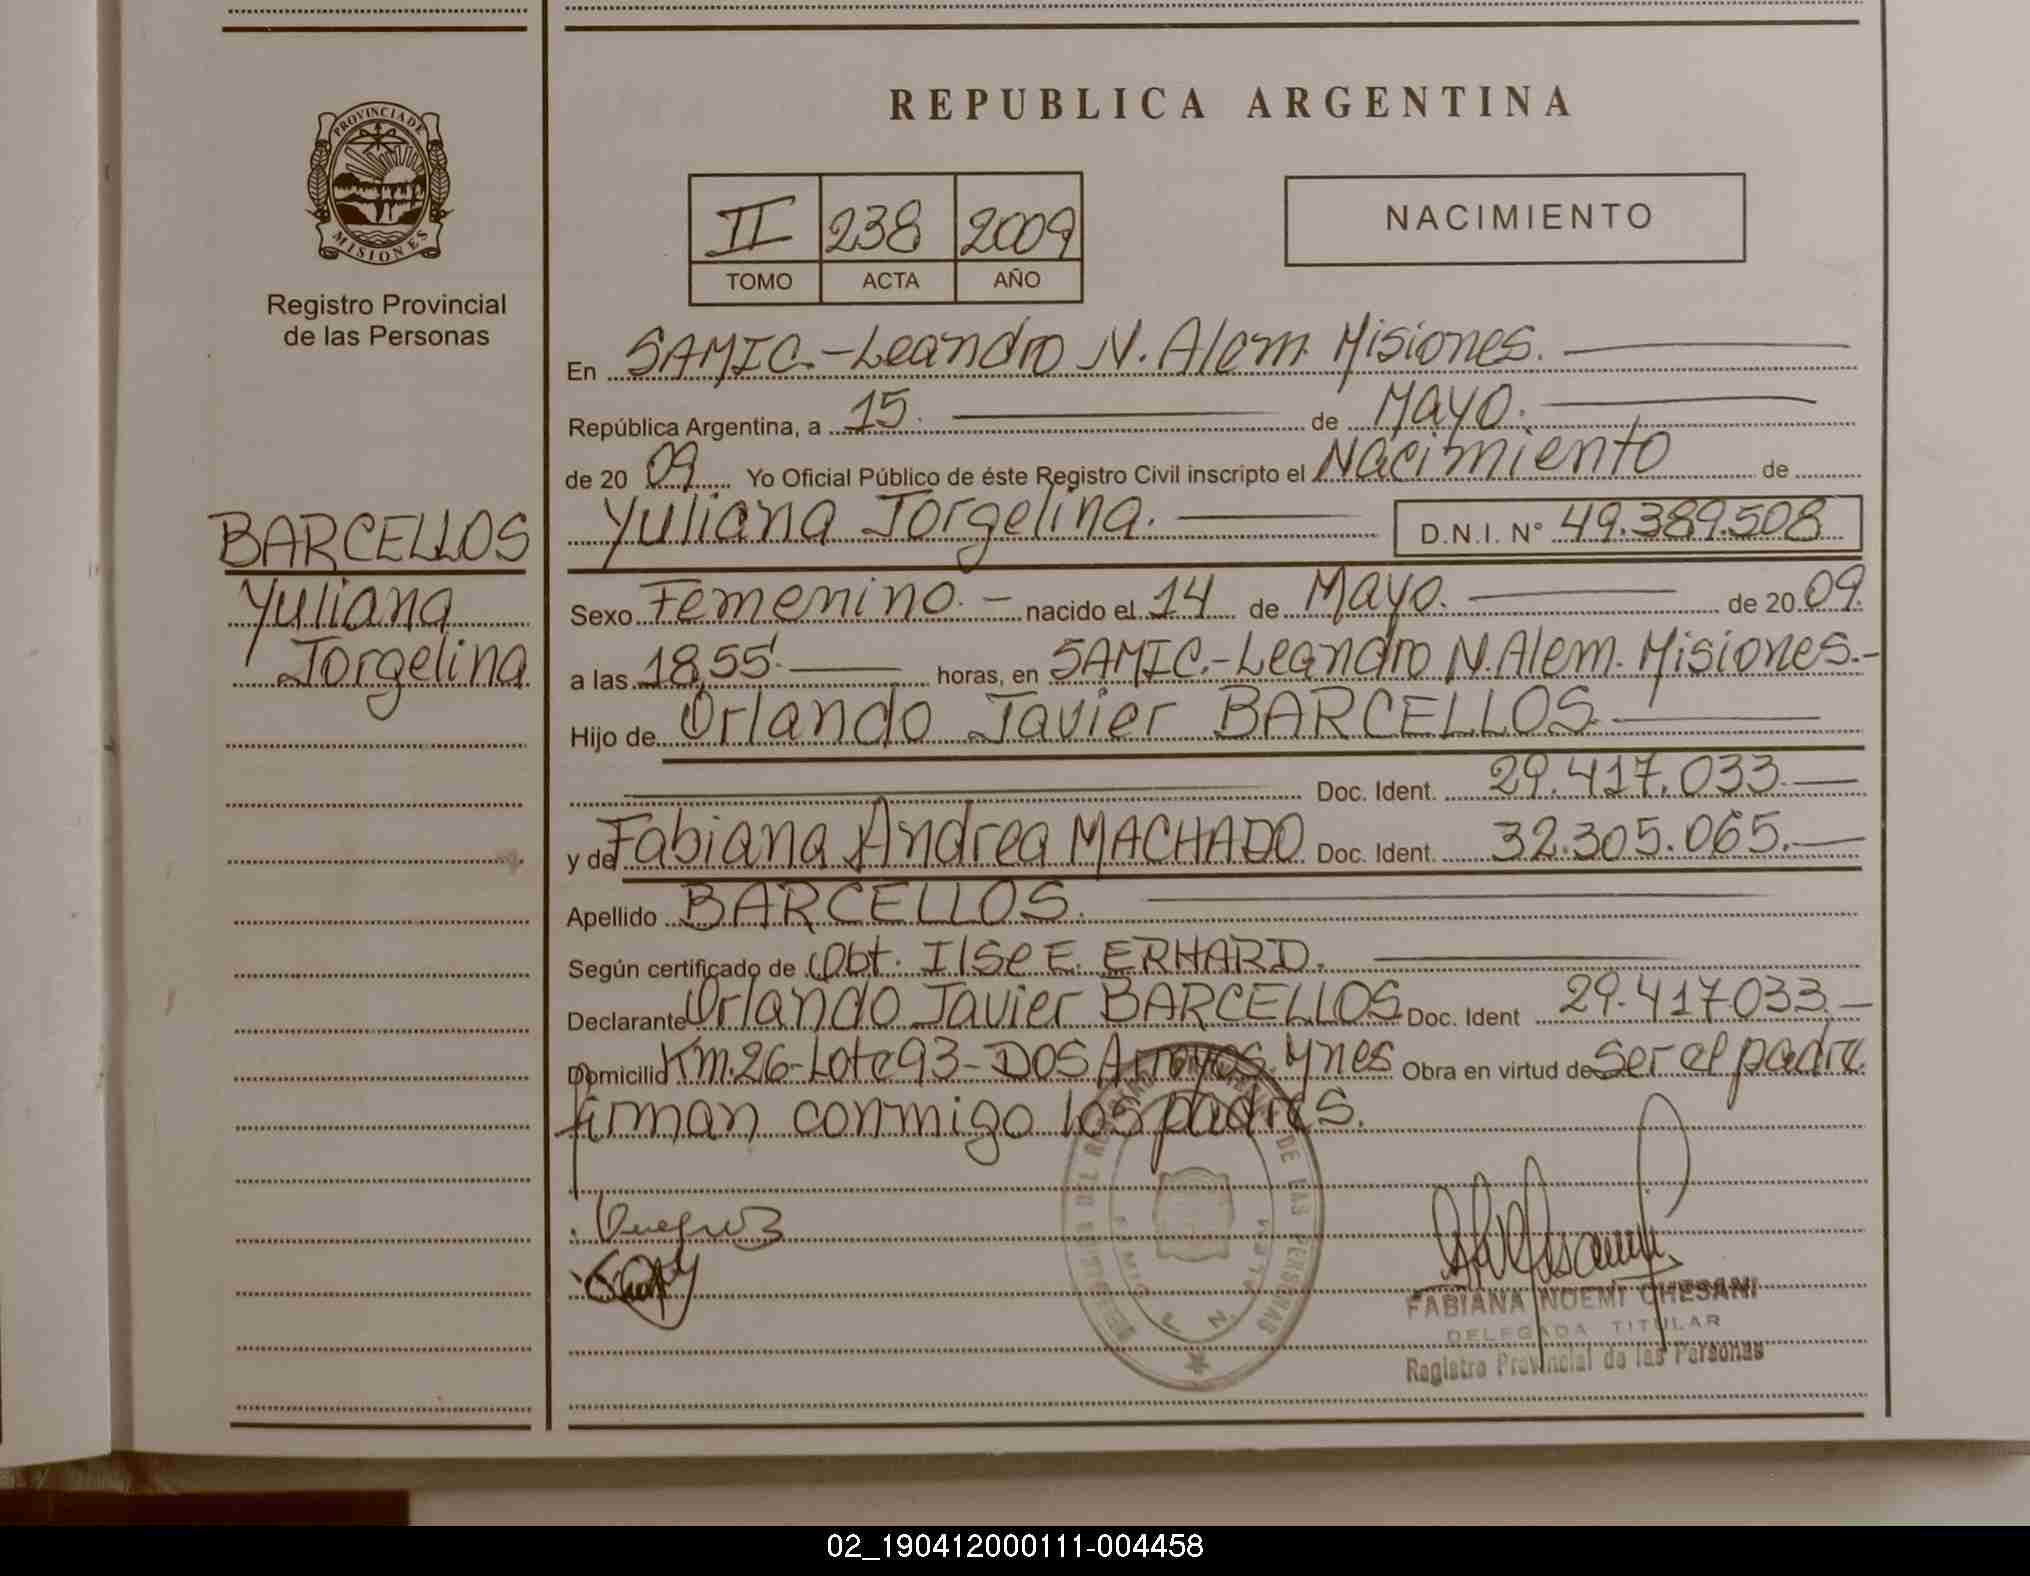 REPUBLICA ARGENTINA
PROVINCIA DE
MISIONES
Registro Provincial
de las Personas
II 238 2009
TOMO ACTA AÑO
NACIMIENTO
En SAMIC.-Leandro N. Alem. Misiones.
República Argentina, a 15. de Mayo.
de 20 09 Yo Oficial Público de éste Registro Civil inscripto el Nacimiento de
Yuliana Jorgelina. D.N.I. N° 49.389.508
BARCELLOS
Yuliana
Jorgelina
Sexo Femenino. - nacido el 14 de Mayo. de 20 09.
a las 18,55'. horas, en SAMIC.-Leandro N. Alem. Misiones.-
Hijo de Orlando Javier BARCELLOS.
Doc. Ident. 29.417.033.
y de Fabiana Andrea MACHADO Doc. Ident. 32.305.065.
Apellido BARCELLOS.
Según certificado de Obt. Ilse E. ERHARD.
Declarante Orlando Javier BARCELLOS Doc. Ident 29.417.033.
Domicilio Km.26-Lote 93-DOS Arroyos. Ynes Obra en virtud de ser el padre
firman conmigo los padres.
FABIANA NOEMI CHESANI
DELEGADA TITULAR
Registro Provincial de las Personas
DE LAS PERSONAS
L. N. ALEM
02_190412000111-004458